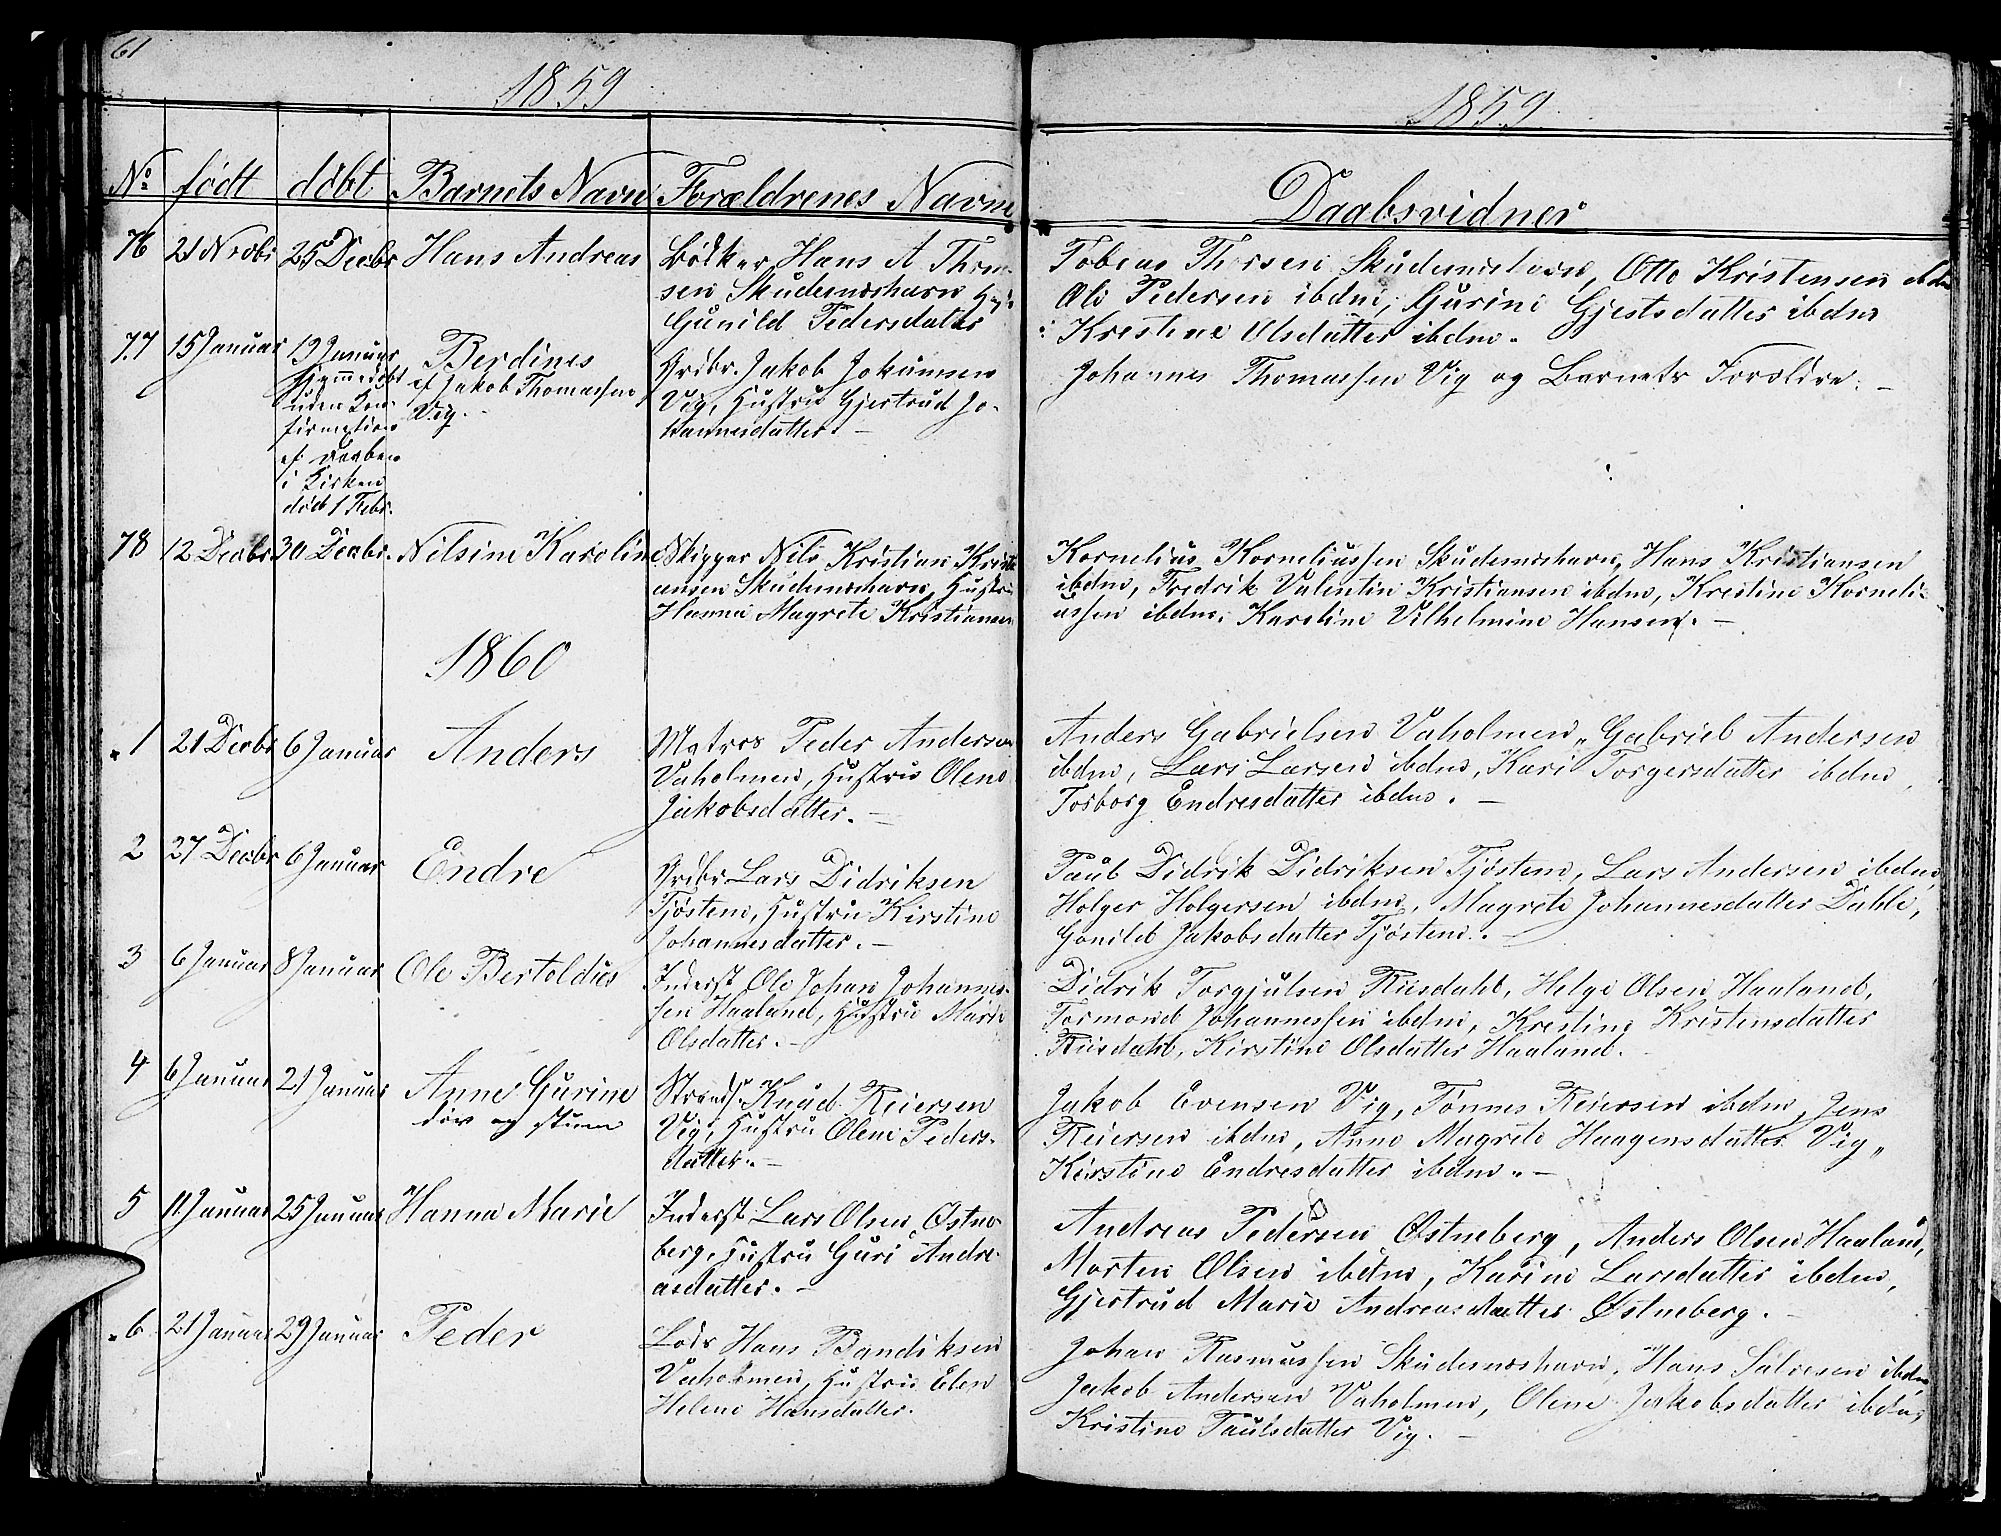 61
1859
1859
No født døbt Barnets Navn Forældrenes Navne
Daabsvidner
76 21 Novbr 25 Decbr Hans Andreas Bødker Hans A Thom-
sen Skudesneshavn
Gunild Pedersdatter
Tobias Thorsen Skudesneshavn, Otto Kristensen ibdm
Ole Pedersen ibdm, Gurine Gjestsdatter ibdm
Kristene Olsdatter ibdm.
77 15 Januar 19 Januar Berdines
hjemmedøbt
uden Con-
firmation
af Daaben
i Kirken
død 1 Febr.
af Jakob Thomassen
Vig.
Grdbr. Jakob Jokumsen
Vig, Hustru Gjertrud Jo-
hannesdatter. -
Johannes Thomassen Vig og Barnets Forældre. -
78 12 Decbr 30 Decbr. Nilsine Karoline Skipper Nils Kristian Kristi-
ansen Skudesneshavn, Hustru
Hanna Magrete Kristiansen
Kornelius Korneliussen Skudesneshavn, Hans Kristiansen
ibdm, Fredrik Valentin Kristiansen ibdm, Kristine Korneli-
ussen ibdm, Karoline Vilhelmine Hansen. -
1860
1 21 Decbr 6 Januar Anders Matros Peder Andersen
Vaholmen, Hustru Olene
Jakobsdatter. -
Anders Gabrielsen Vaholmen, Gabriel Andersen
ibdm, Lars Larsen ibdm, Kari Torgersdatter ibdm,
Torborg Endresdatter ibdm. -
2 27 Decbr 6 Januar Endre Grdbr Lars Didriksen
Tjøstem, Hustru Kirstine
Johannesdatter. -
Paul Didrik Didriksen Tjøstem, Lars Andersen ibdm,
Holger Holgersen ibdm, Magrete Johannesdatter Dahle,
Gonild Jakobsdatter Tjøstem. -
3 6 Januar 8 Januar Ole Bertoldus Inderst Ole Johan Johannes-
sen Haaland, Hustru Marie
Olsdatter. -
Didrik Torgjulsen Riisdahl, Helge Olsen Haaland,
Tormond Johannessen ibdm, Krestine Kristensdatter
Riisdahl, Kirstine Olsdatter Haaland. -
4 6 Januar 21 Januar Anne Gurine
døv og stum
Strands. Knud Reiersen
Vig, Hustru Olene Peders-
datter. -
Jakob Evensen Vig, Tønnes Reiersen ibdm, Jens
Reiersen ibdm, Anne Magrete Haagensdatter Vig,
Kirstine Endresdatter ibdm. -
5 11 Januar 25 Januar Hanna Marie Inderst Lars Olsen Østne-
berg, Hustru Guri Andre-
asdatter. -
Andreas Pedersen Østneberg, Anders Olsen Haaland,
Morten Olsen ibdm, Karine Larsdatter ibdm,
Gjertrud Marie Andreasdatter Østneberg. -
6 21 Januar 29 Januar Peder Lods Hans Bendiksen
Vaholmen, Hustru Elen
Helene Hansdatter.
Johan Rasmussen Skudesneshavn, Hans Salvesen ibdm,
Jakob Andersen Vaholmen, Olene Jakobsdatter ibdm,
Kristine Paulsdatter Vig. -